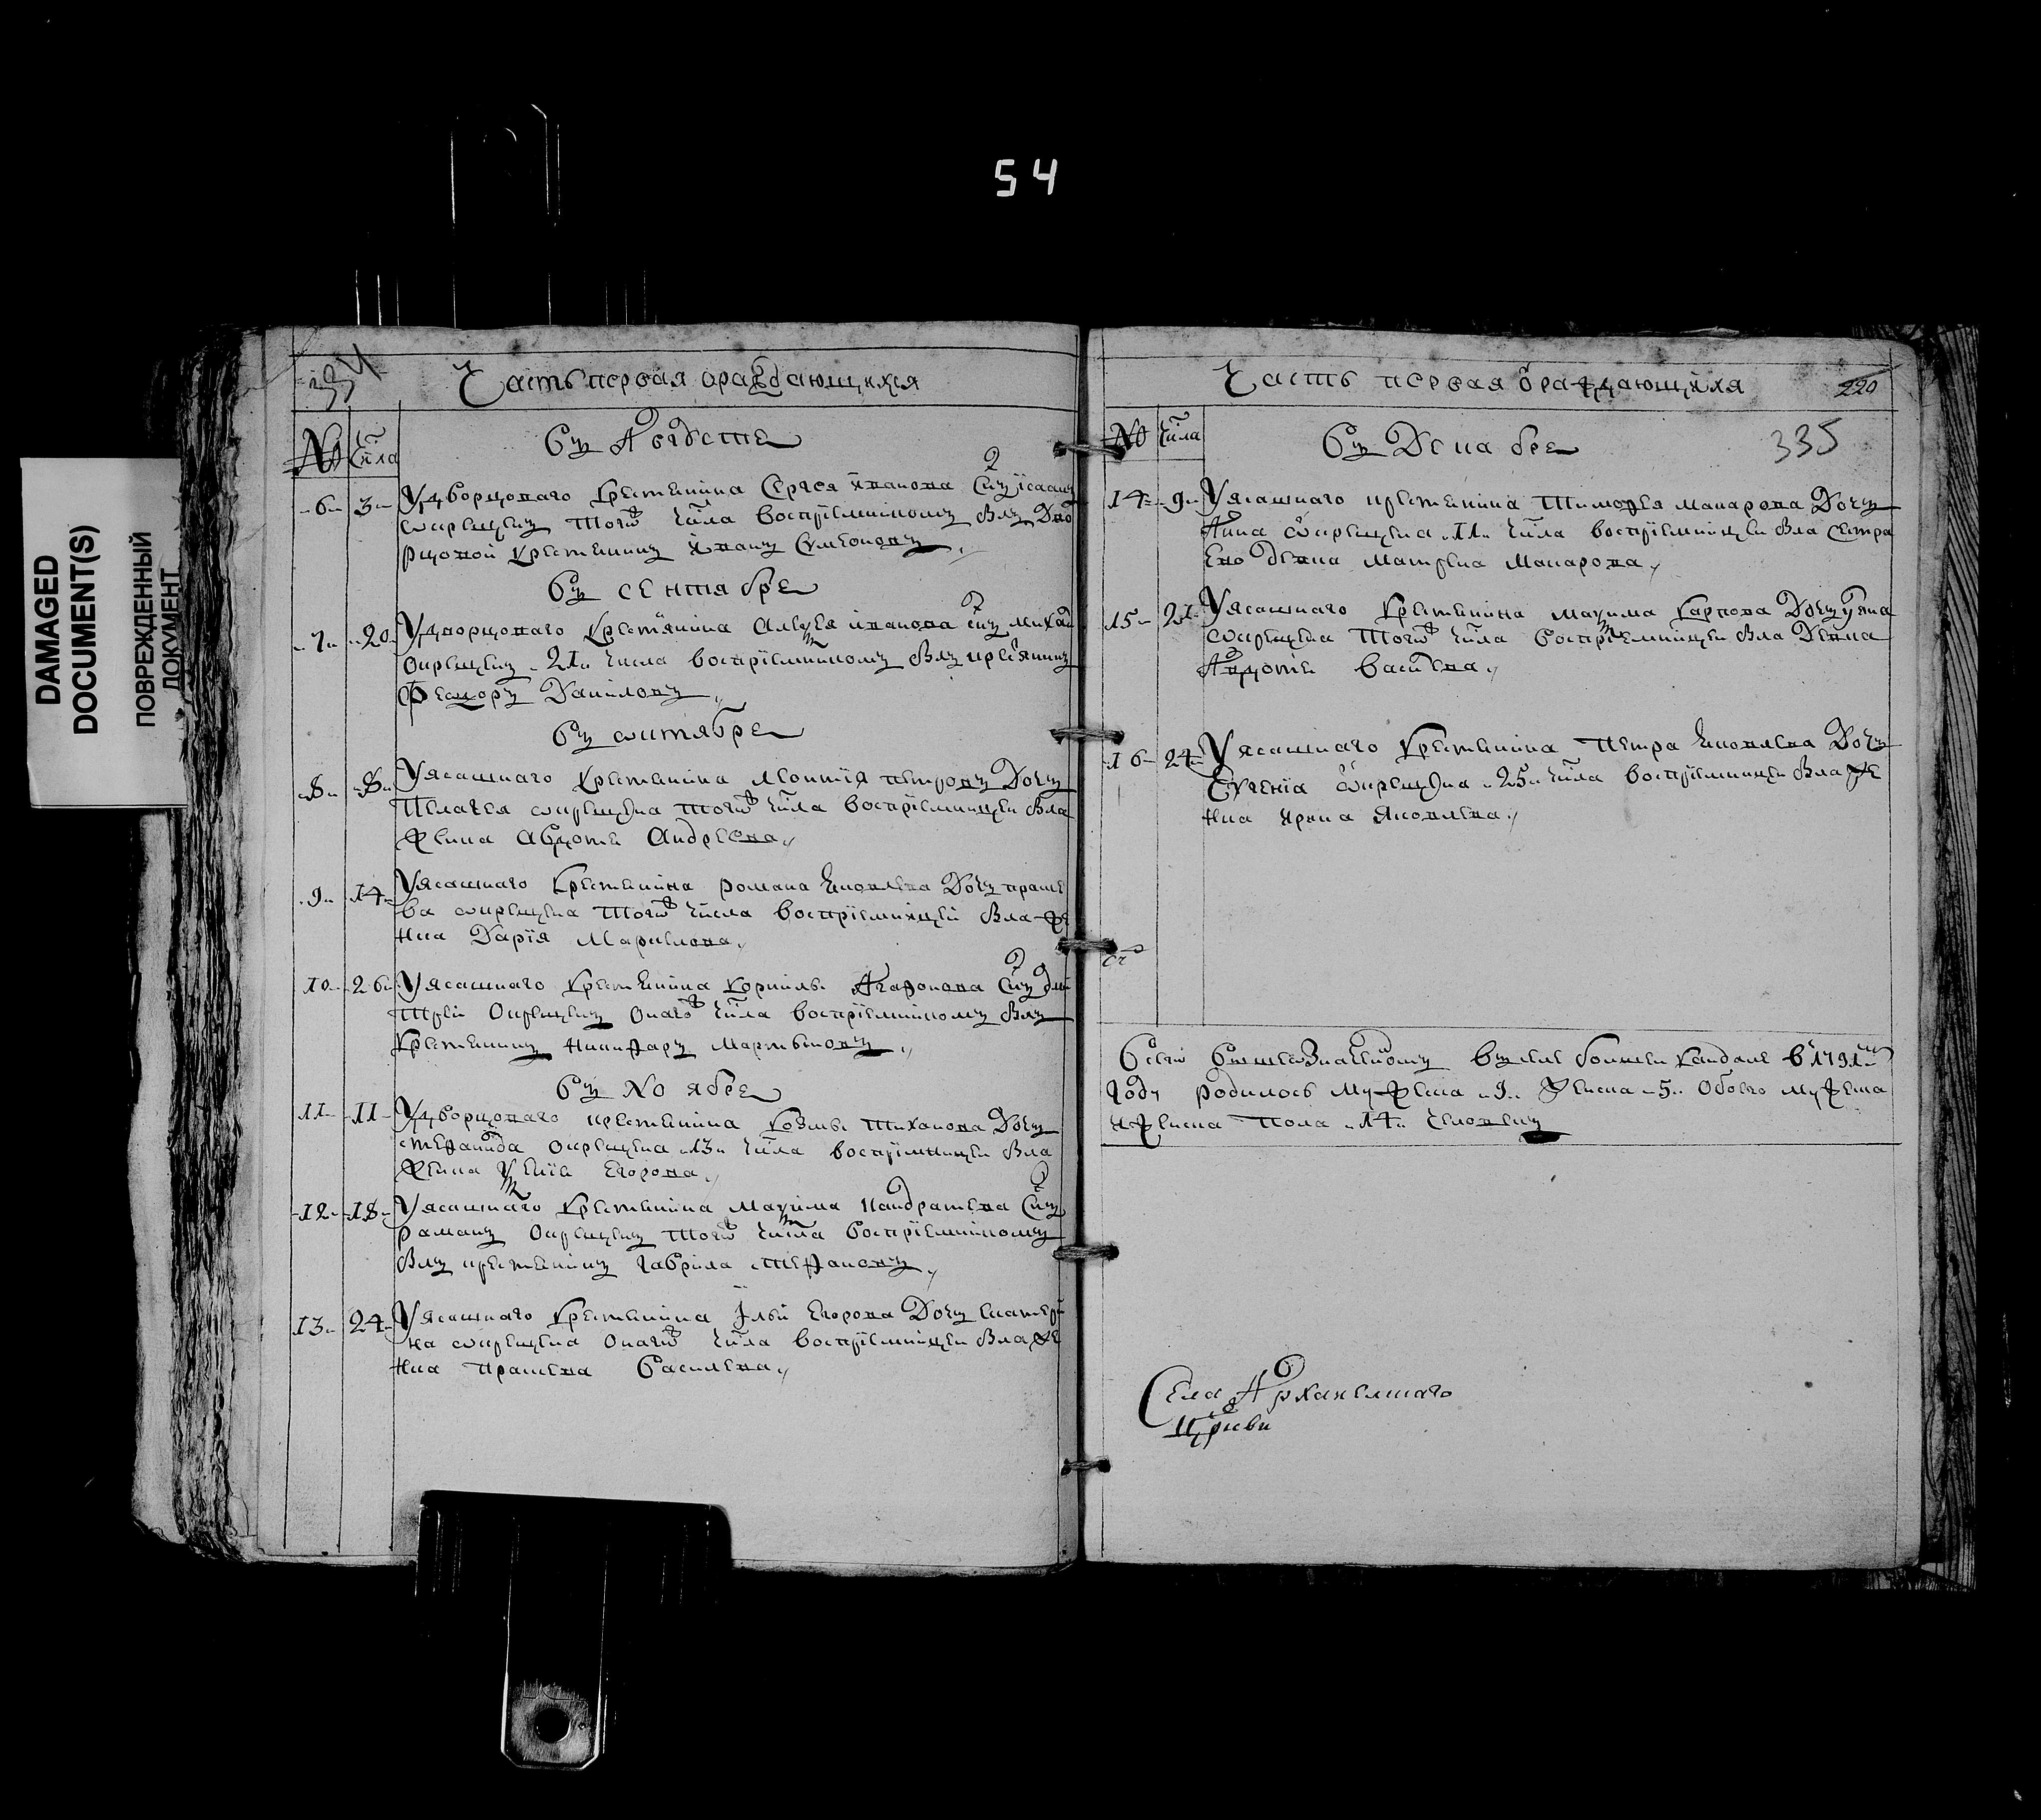 54
DAMAGED
DOCUMENT(S)
ПОВРЕЖДЕННЫЙ
ДОКУМЕНТ
334
Часть первая ораждающихся
№ Числа
Въ Августе
6 3 У дворцоваго крестьянина Сергея Иванова сынъ Исаакъ
окрещенъ того числа восприемникомъ былъ дво
рцовой крестьянинъ Иванъ Сумеоновъ
Въ сентябре
7 20 У дворцоваго крестьянина Алексея Иванова сынъ Михаи
окрещенъ 21 числа восприемникомъ былъ крестьянинъ
Феодоръ Даниловъ
Въ октябре
8 8 У ясашнаго крестьянина Леонтия Петровъ дочь
Пелагея окрещена того числа восприемницею была
жонка Авдотья Андреева
9 14 У ясашнаго крестьянина Романа Яковлева дочь Праске
ва окрещена того числа восприемницей была же
нка Дария
10 26 У ясашнаго крестьянина Корнилы Агафонова сынъ Дми
трей окрещенъ онаго числа восприемникомъ былъ
крестьянинъ Никифаръ Мартыновъ
Въ Ноябре
11 11 У дворцоваго крестьянина Козмы Тиханова дочь
Степанида окрещена 13 числа восприемницею была
жонка Егорова
12 18 У ясашнаго крестьянина Максима Кандратева сынъ
Раманъ окрещенъ того числа восприемникомъ
былъ крестьянинъ Гаврила Степановъ
13 24 У ясашнаго крестьянина Ильи Егорова дочь Екатери
на окрещена онаго числа восприемницею была же
нка Праскева Василева
Часть первая ораждающихся 220
№ Числа
Въ Декабре 335
14 9 У ясашнаго крестьянина Тимофея Макарова дочь
Анна окрещена 11 числа восприемницею была сестра
ево девка Макарова
15 21 У ясашнаго крестьянина Максима Карпова дочь
окрещена того числа восприемницею была девка
Авдотья Василева
16 24 У ясашнаго крестьянина Петра Яковлева дочь
Евгения окрещена 25 числа восприемницею была же
нка Ирина Яковлева
Всего вышеозначенному въ селе Кандале в 1791м
году родилось мужеска 9 женска 5 обоего мужеска
и женска пола 14 человекъ
Села Арханелшаго
церкви